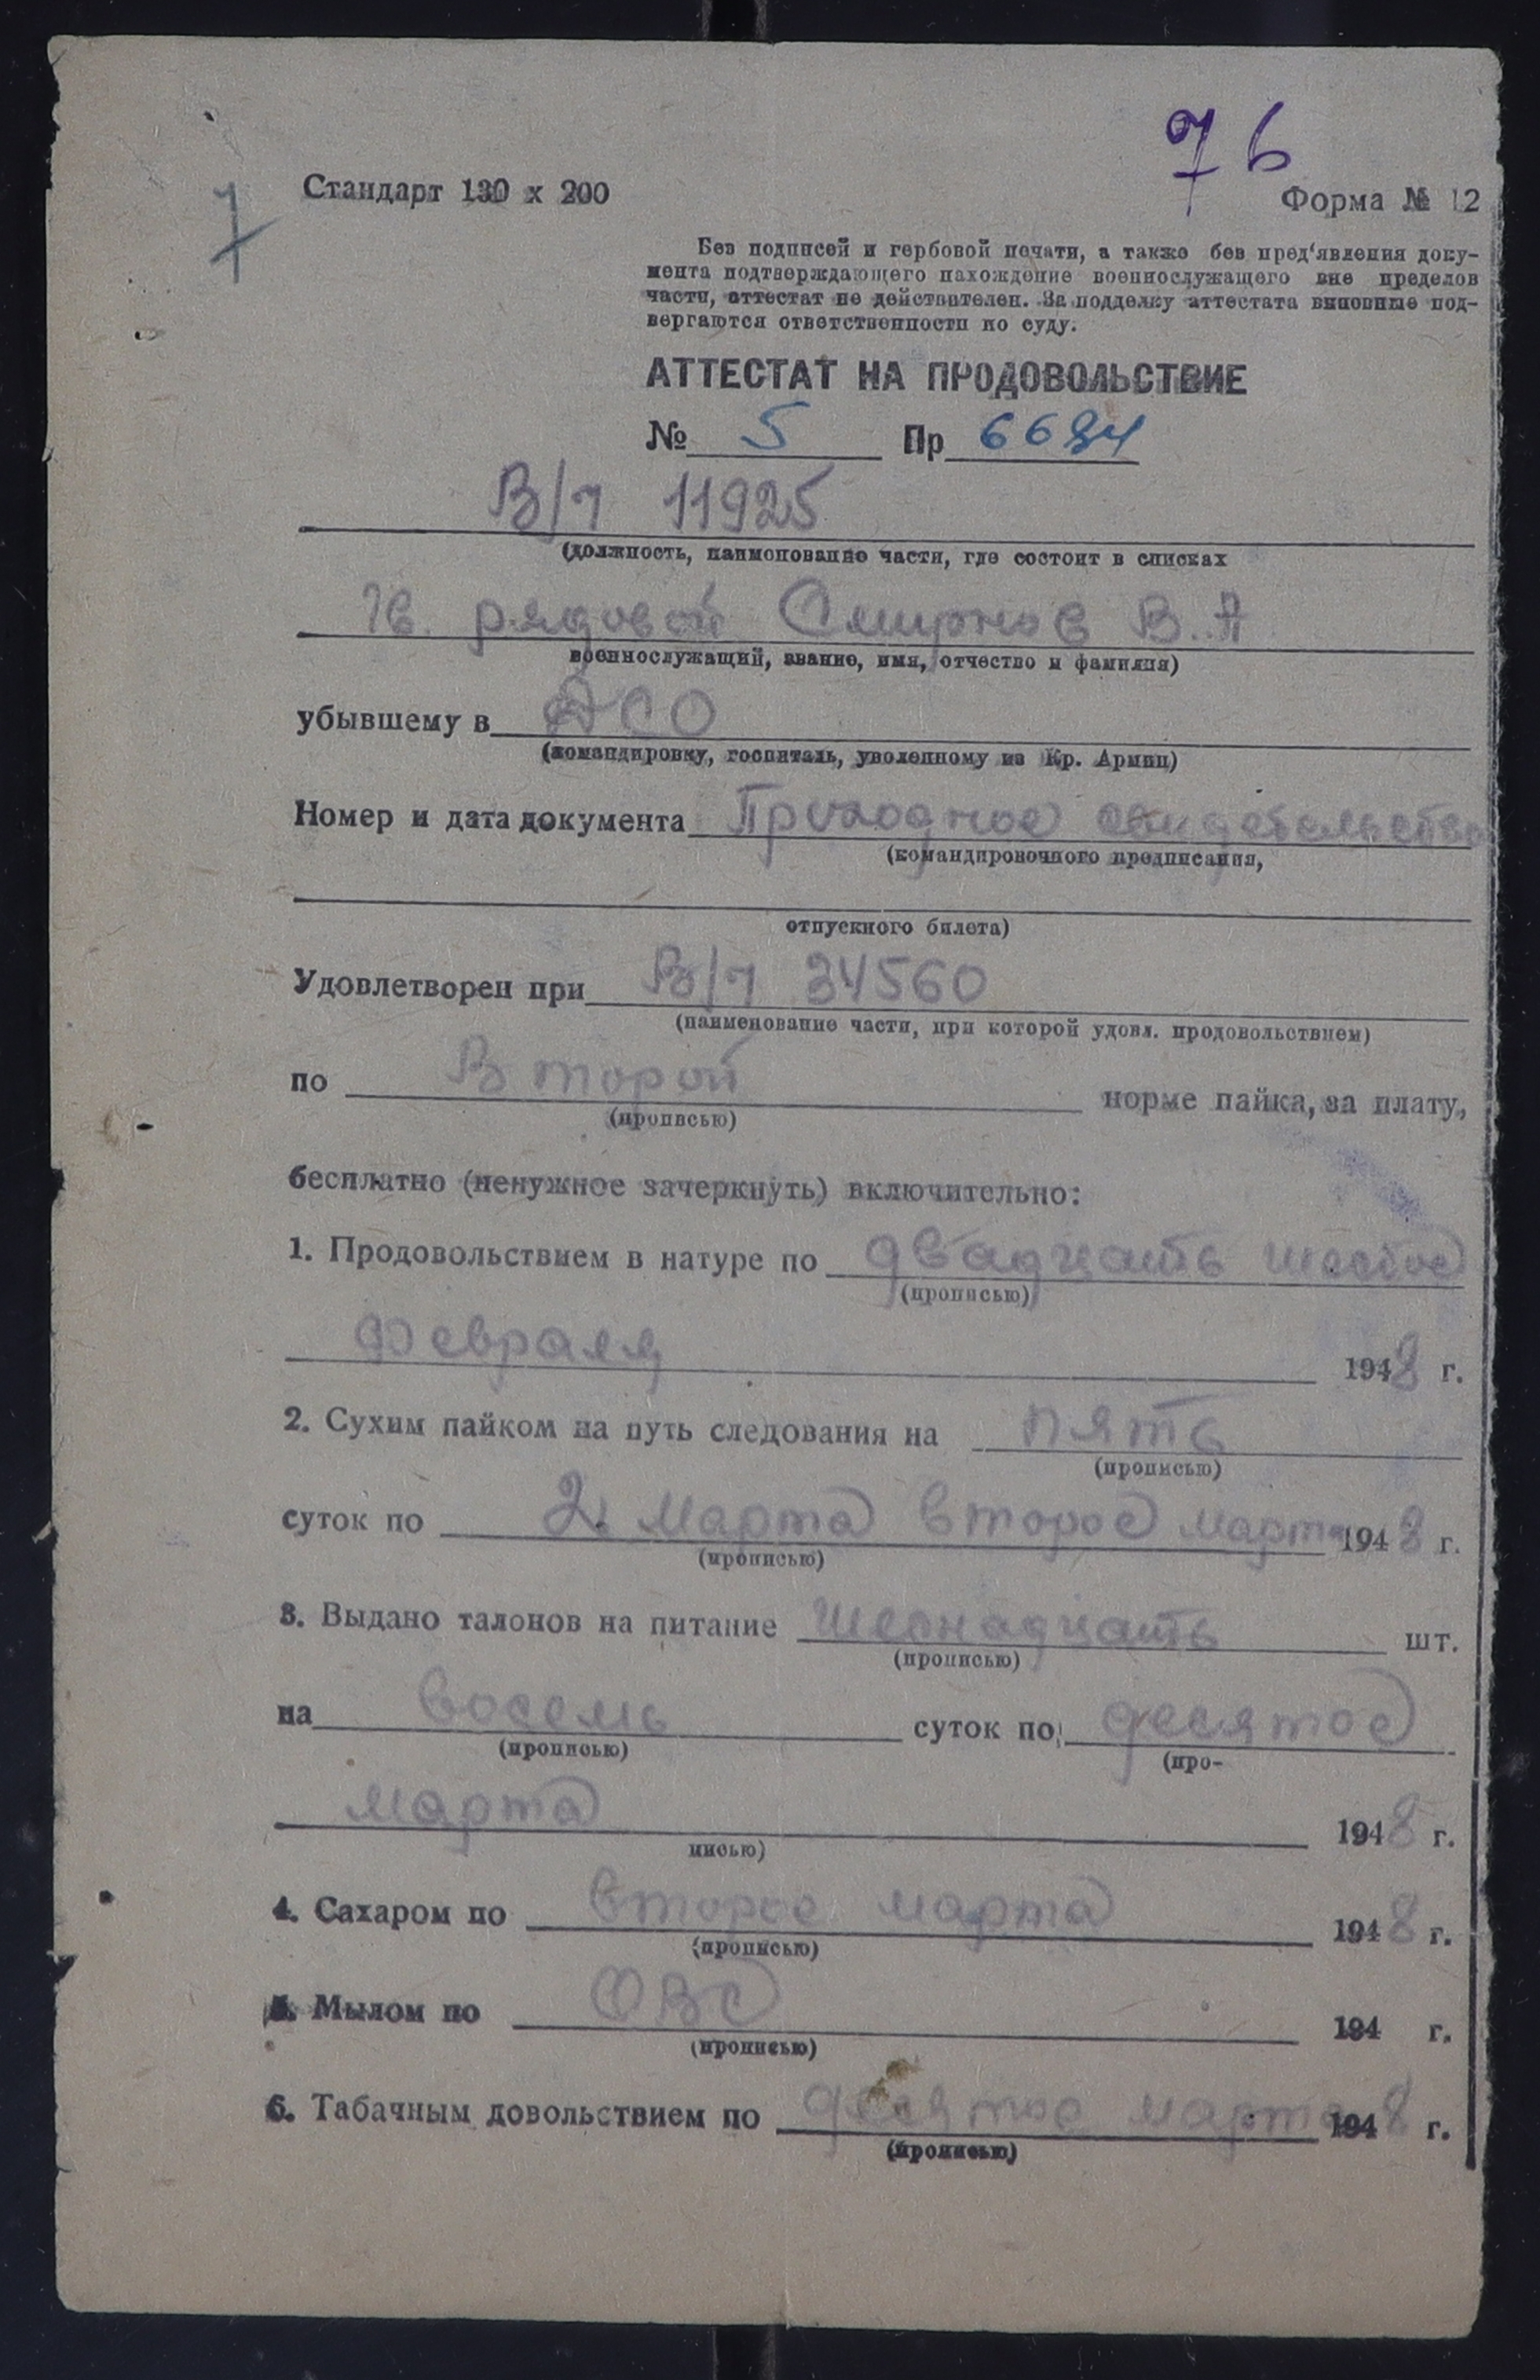 76
7
Стандарт 130 х 200
Форма № 12
Без подписей и гербовой печати, а также без пред'явления доку-
мента подтверждающего нахождение военнослужащего вне пределов
части, аттестат не действителен. За подделку аттестата виновные под-
вергаются ответственности по суду.
АТТЕСТАТ НА ПРОДОВОЛЬСТВИЕ
№ 5 Пр
В/ч 11925
(должность, наименование части, где состоит в списках
Гв. рядовой Смирнов В. А
военнослужащий, звание, имя, отчество и фамилия)
убывшему в
(командировку, госпиталь, уволенному из Кр. Армии)
Номер и дата документа свидетельство
(командировочного предписания,
отпускного билета)
Удовлетворен при В/ч 34560
(наименование части, при которой удовл. продовольствием)
по Второй норме пайка, за плату,
(прописью)
бесплатно (ненужное зачеркнуть) включительно:
1. Продовольствием в натуре по двадцать шестое
(прописью)
февраля 1948 г.
2. Сухим пайком на путь следования на пять
(прописью)
суток по 2 марта второе марта 1948 г.
(прописью)
3. Выдано талонов на питание шеснадцать шт.
(прописью)
на восемь суток по десятое
(прописью) (про-
марта 1948 г.
писью)
4. Сахаром по второе марта 1948 г.
(прописью)
5. Мылом по ОВС 194 г.
(прописью)
6. Табачным довольствием по десятое марта 1948 г.
(прописью)